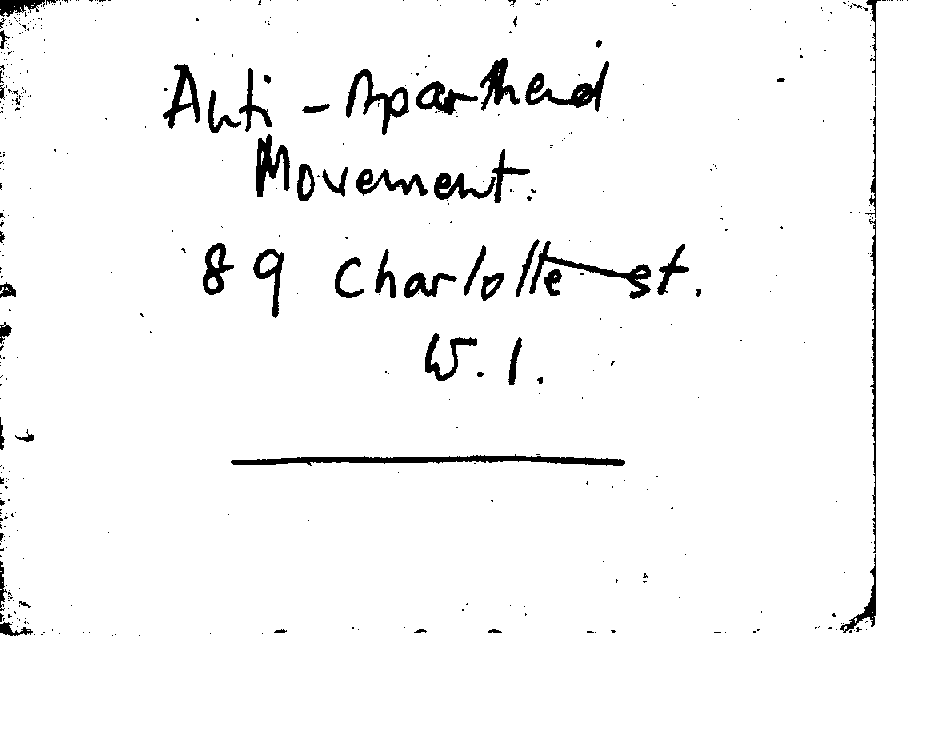 Anti-Apartheid
Movement.
89 Charlotte st.
W.1.